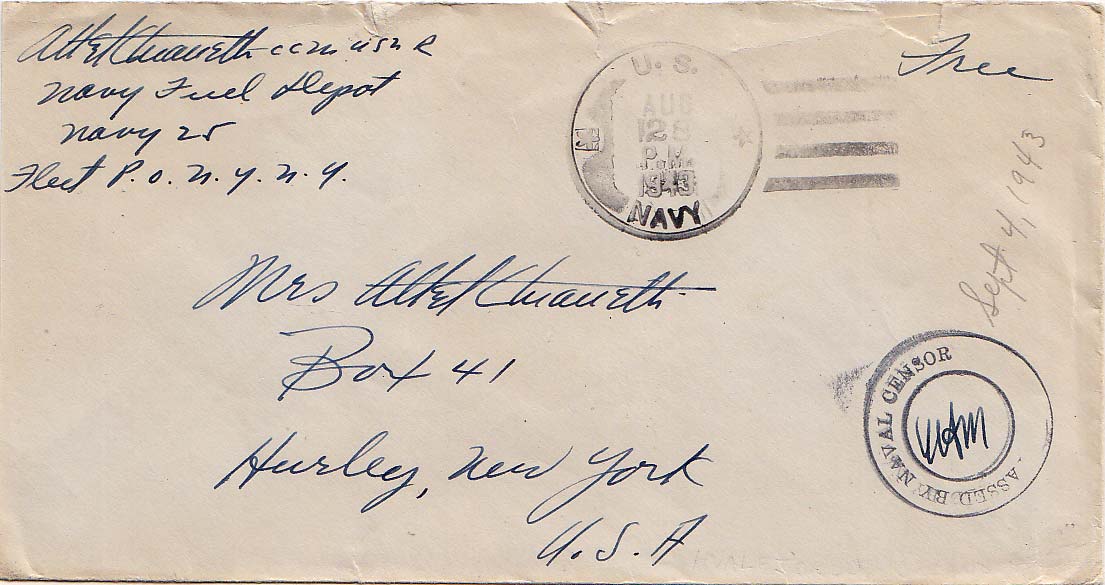 CCM USNR
Navy Fuel Depot
Navy 25
Fleet P.O. N.Y. N.Y.
U. S.
AUG
128
P.M.
1943
NAVY
Free
Sept 4, 1943
Mrs
Box 41
Hurley, New York
U.S.A
ASSED BY NAVAL CENSOR